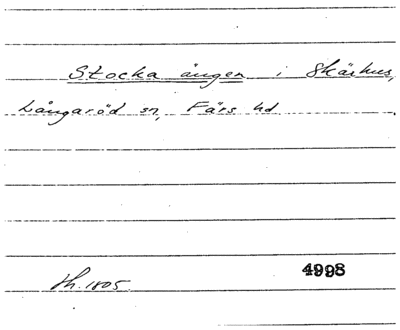 Stocka ängen i Skärhus,
Långaröd sn, Färs hd
Sh. 1805.
4998